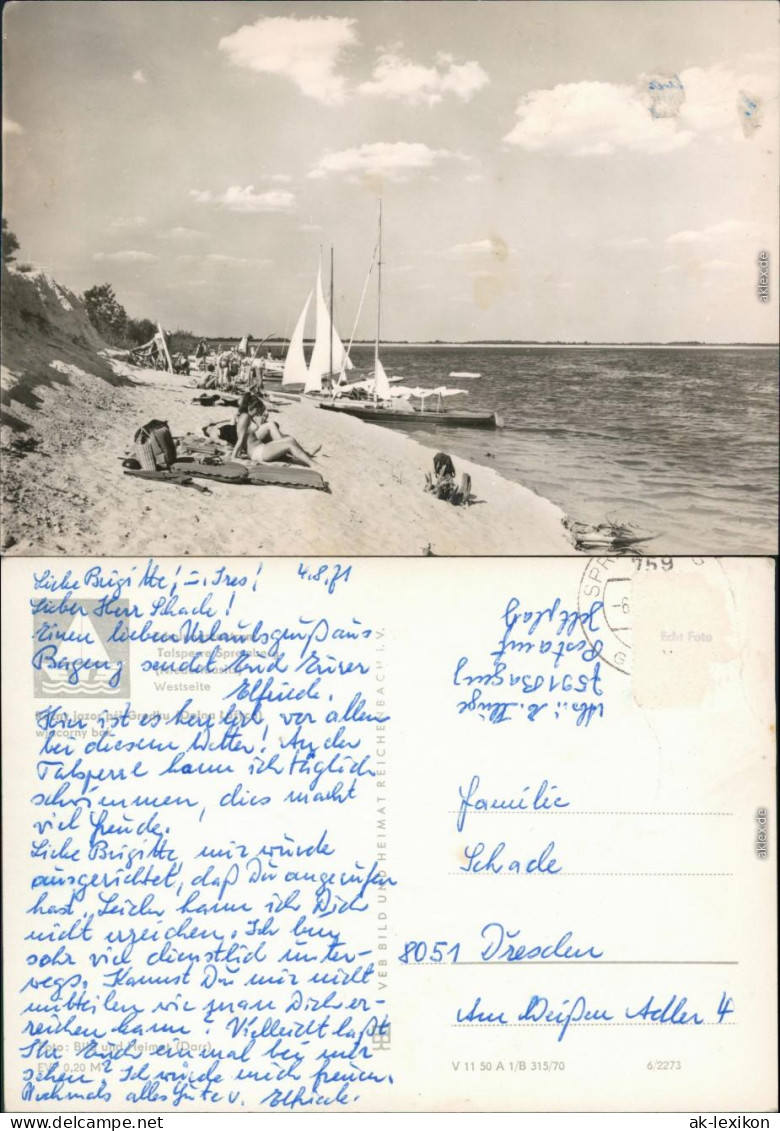 aklex.de
Liebe Brigitte! u. Ires! 4.8.71
Lieber Herr Schade!
Einen lieben Urlaubsgruß aus
Bagenz sendet Euch Eurer
Elfriede.
Hier ist es herrlich, vor allen
bei diesem Wetter! An der
Talsperre kann ich täglich
schwimmen, dies macht
viel Freude.
Liebe Brigitte, mir würde
ausgerichtet, daß Du angerufen
hast. Leider kann ich Dich
nicht erreichen. Ich bin
sehr viel dienstlich unter-
wegs. Kannst Du mir nicht
mitteilen wie man Dich er-
reichen kann? Vielleicht laßt
Ihr Euch einmal bei mir
sehen? Ich würde mich freuen.
Nochmals alles Gute v. Elfriede.
Talsperre
Westseite
Foto: Bild und Heimat (Darr)
EVP 0,20 M
VEB BILD UND HEIMAT REICHENBACH I. V.
7591 Bagenz
Postamt
Zeltplatz
SPR
759
Echt Foto
Familie
Schade
8051 Dresden
Am Weißen Adler 4
V 11 50 A 1/B 315/70 6/2273
aklex.de
www.ansichtskarten-lexikon.de
ak-lexikon